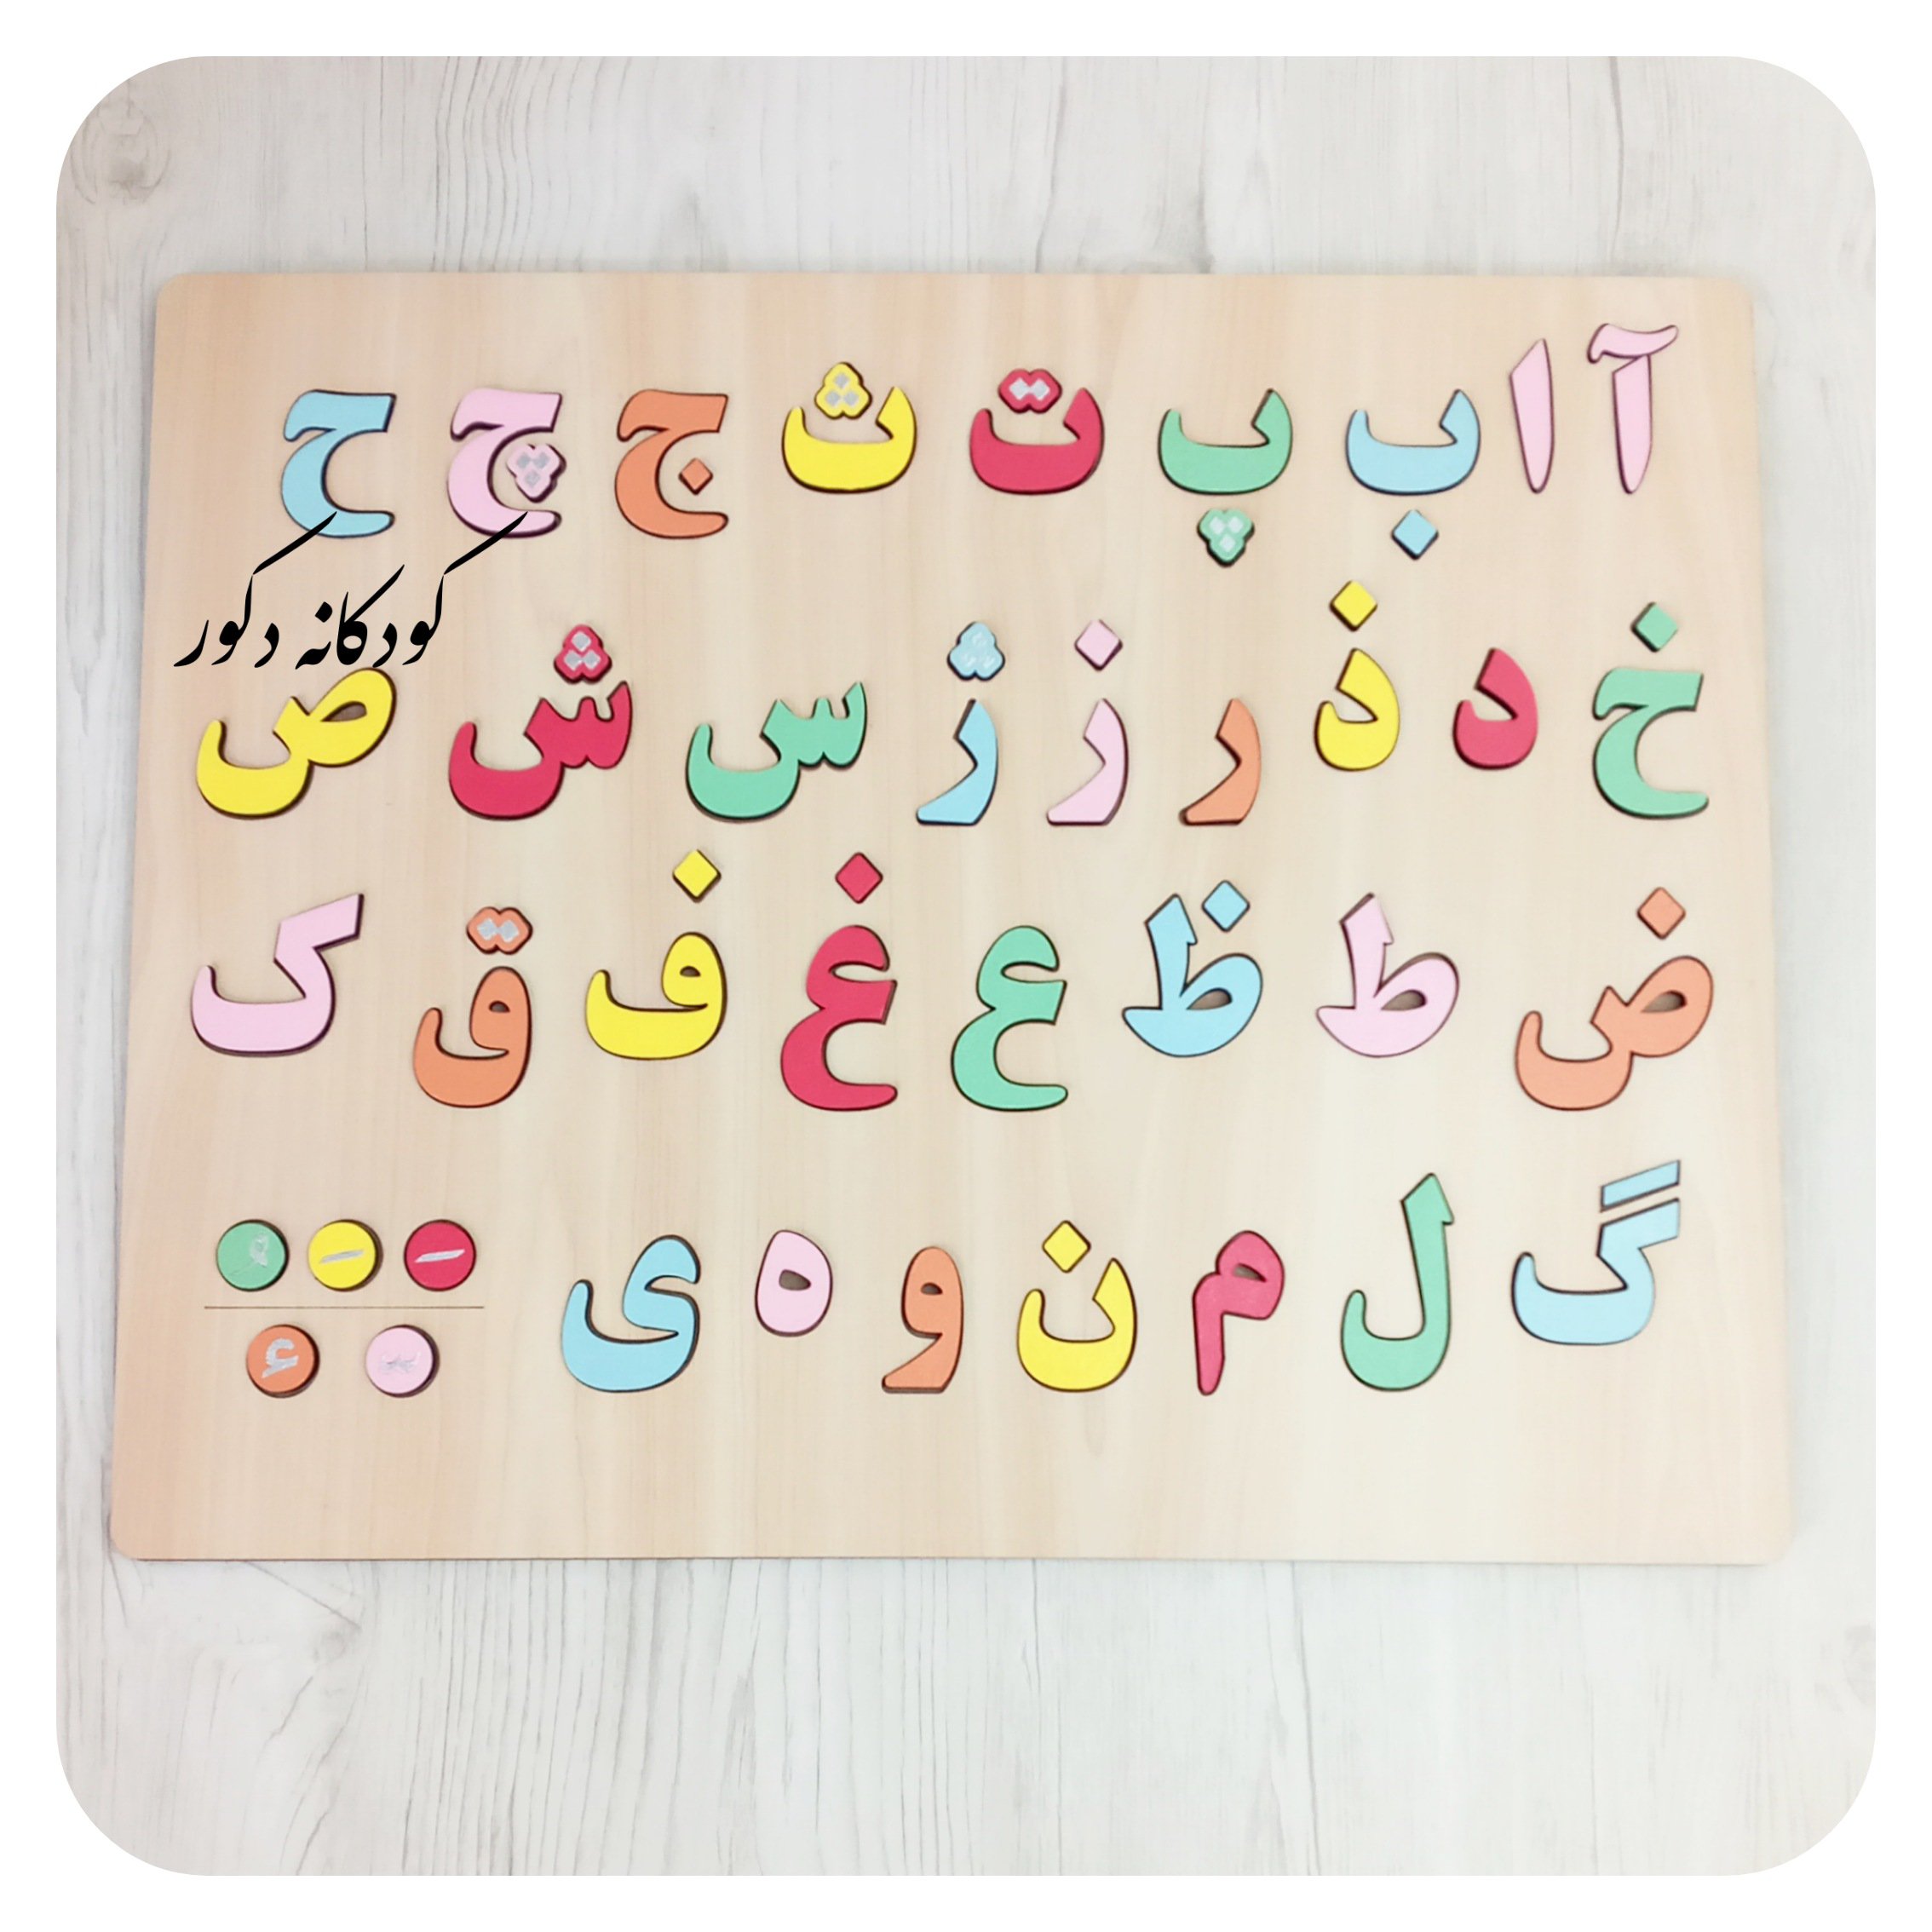 آ ا ب پ ت ث ج چ ح
کودکانه دکور
خ د ذ ر ز ژ س ش ص
ض ط ظ ع غ ف ق ک
گ ل م ن و ه ی
َ ِ ُ
ّ ء